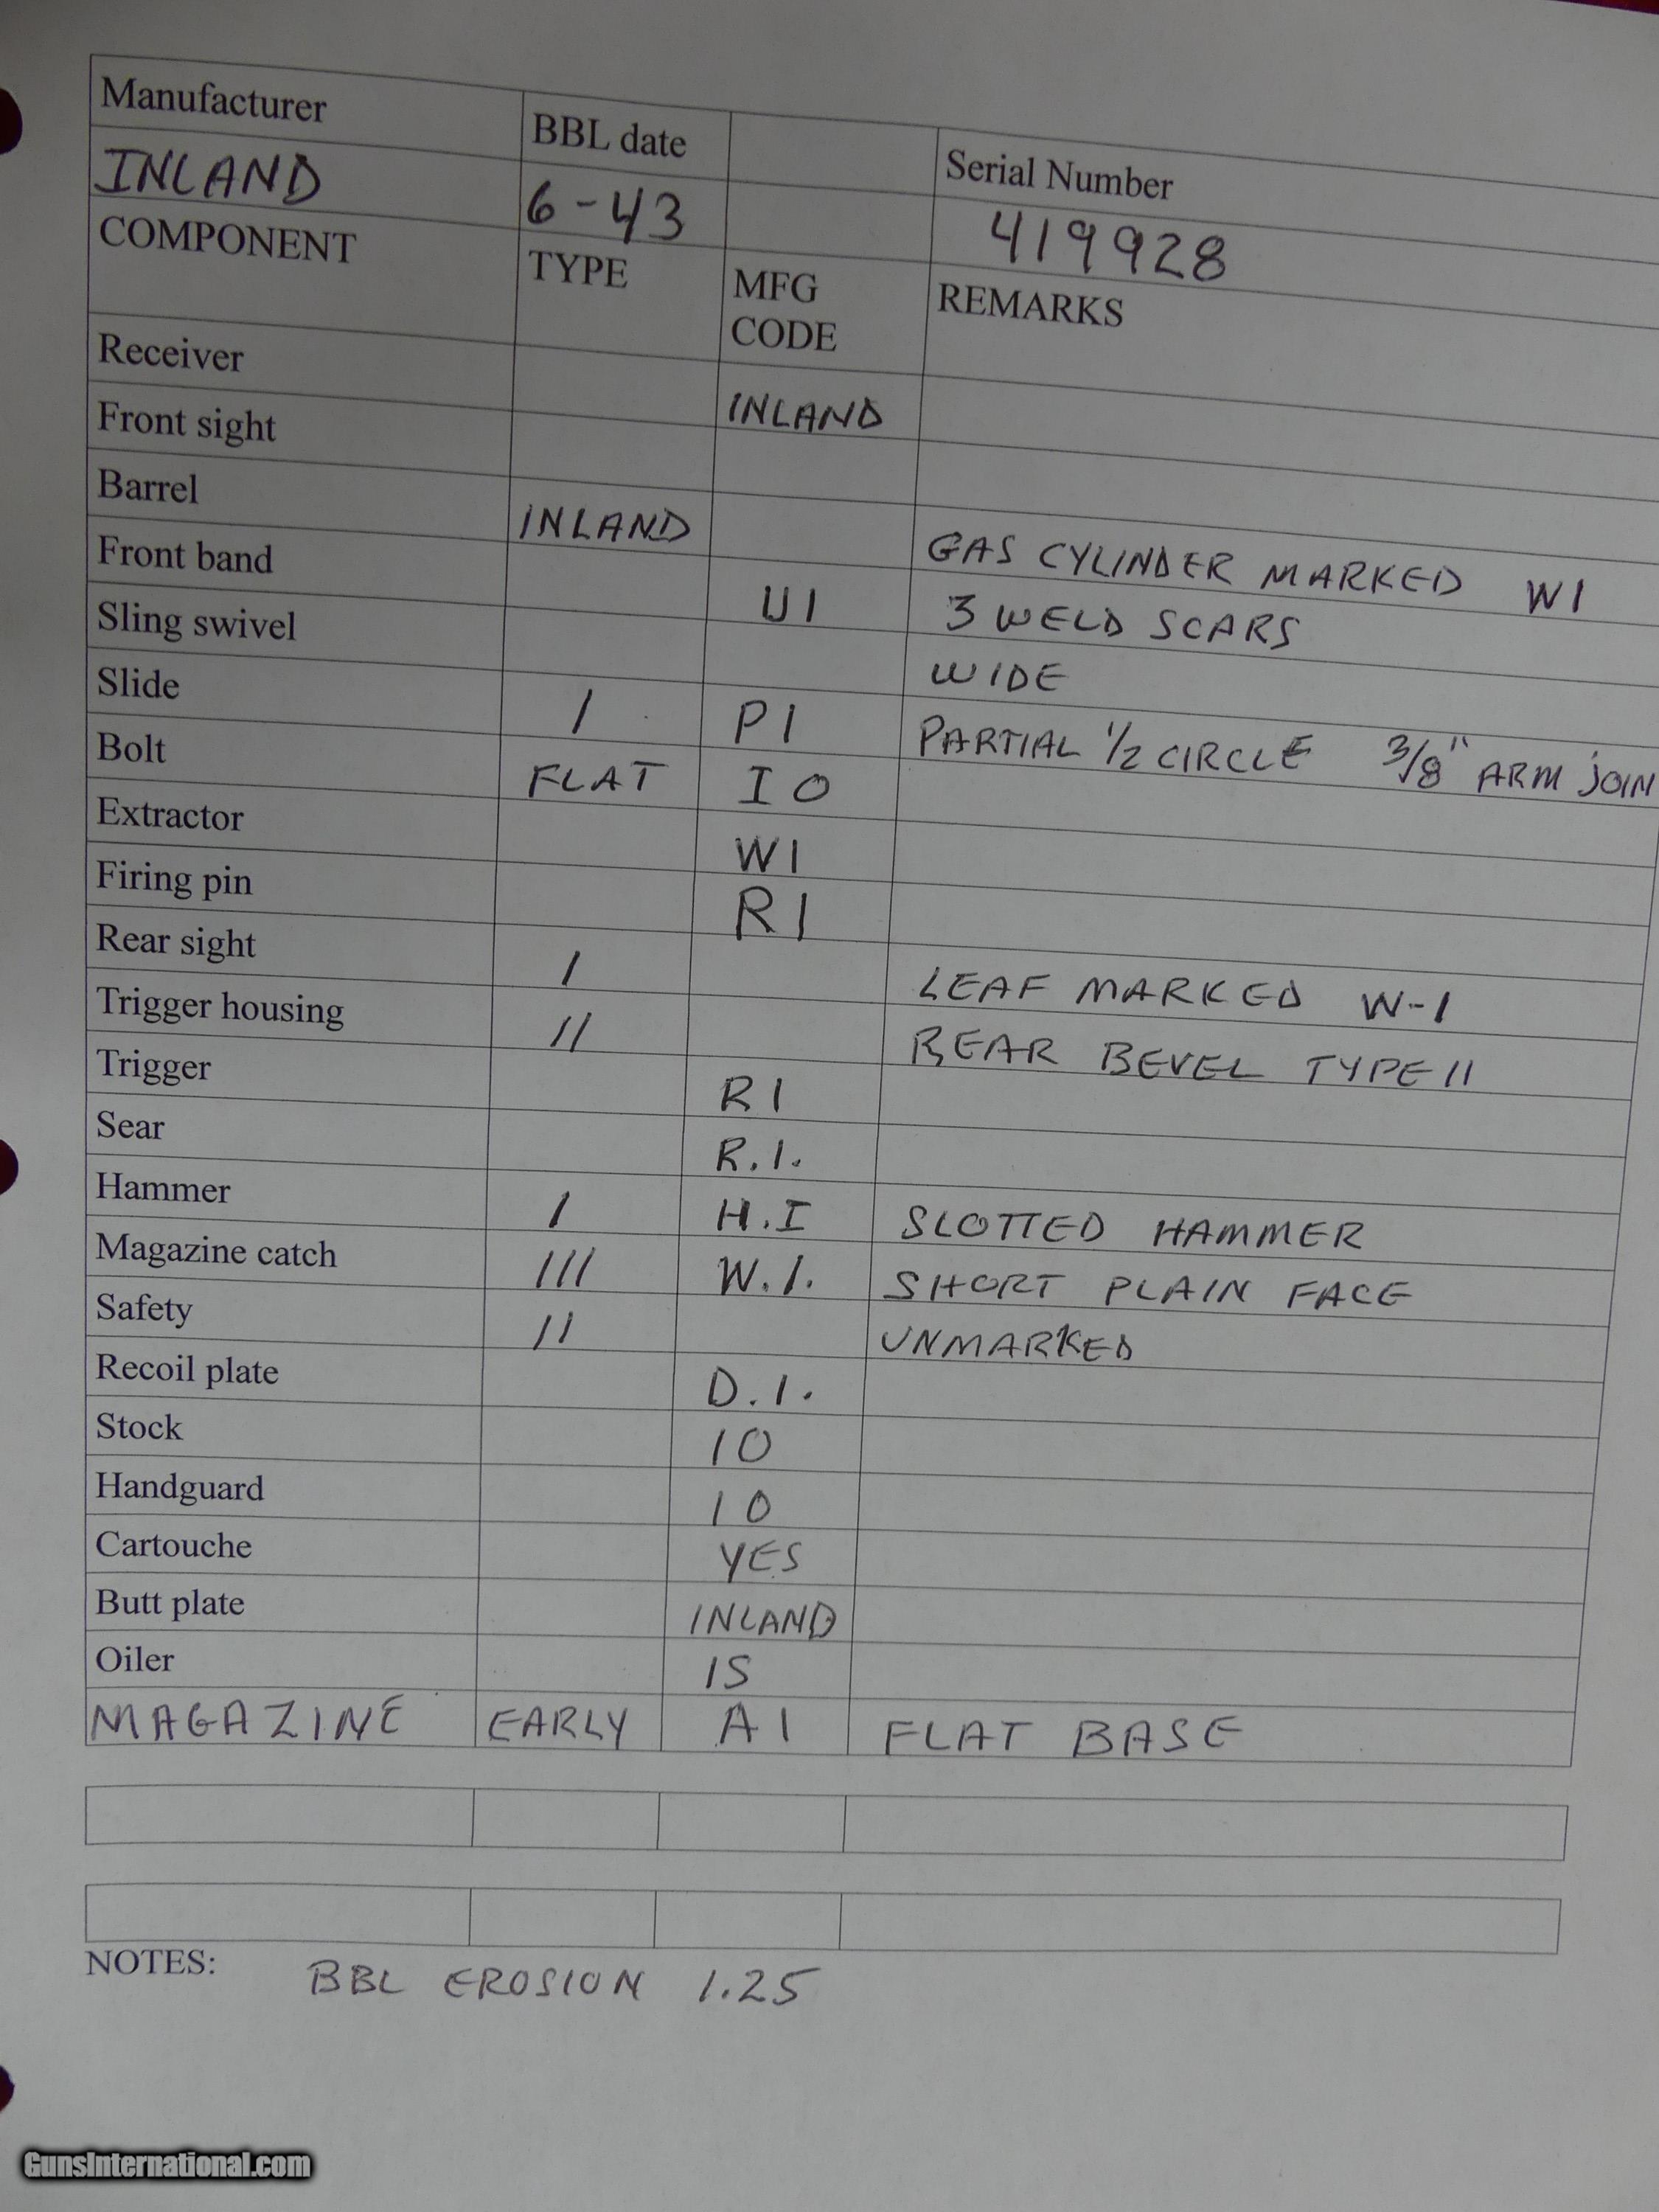 Manufacturer BBL date Serial Number
INLAND 6-43 419928
COMPONENT TYPE MFG CODE REMARKS
Receiver INLAND
Front sight
Barrel INLAND GAS CYLINDER MARKED WI
Front band UI 3 WELD SCARS
Sling swivel WIDE
Slide I PI PARTIAL 1/2 CIRCLE 3/8" ARM JOIN
Bolt FLAT IO
Extractor WI
Firing pin RI
Rear sight I LEAF MARKED W-I
Trigger housing II REAR BEVEL TYPE II
Trigger RI
Sear R.I.
Hammer I H.I SLOTTED HAMMER
Magazine catch III W.I. SHORT PLAIN FACE
Safety II UNMARKED
Recoil plate D.I.
Stock IO
Handguard IO
Cartouche YES
Butt plate INLAND
Oiler IS
MAGAZINE EARLY AI FLAT BASE
NOTES: BBL EROSION 1.25
GunsInternational.com